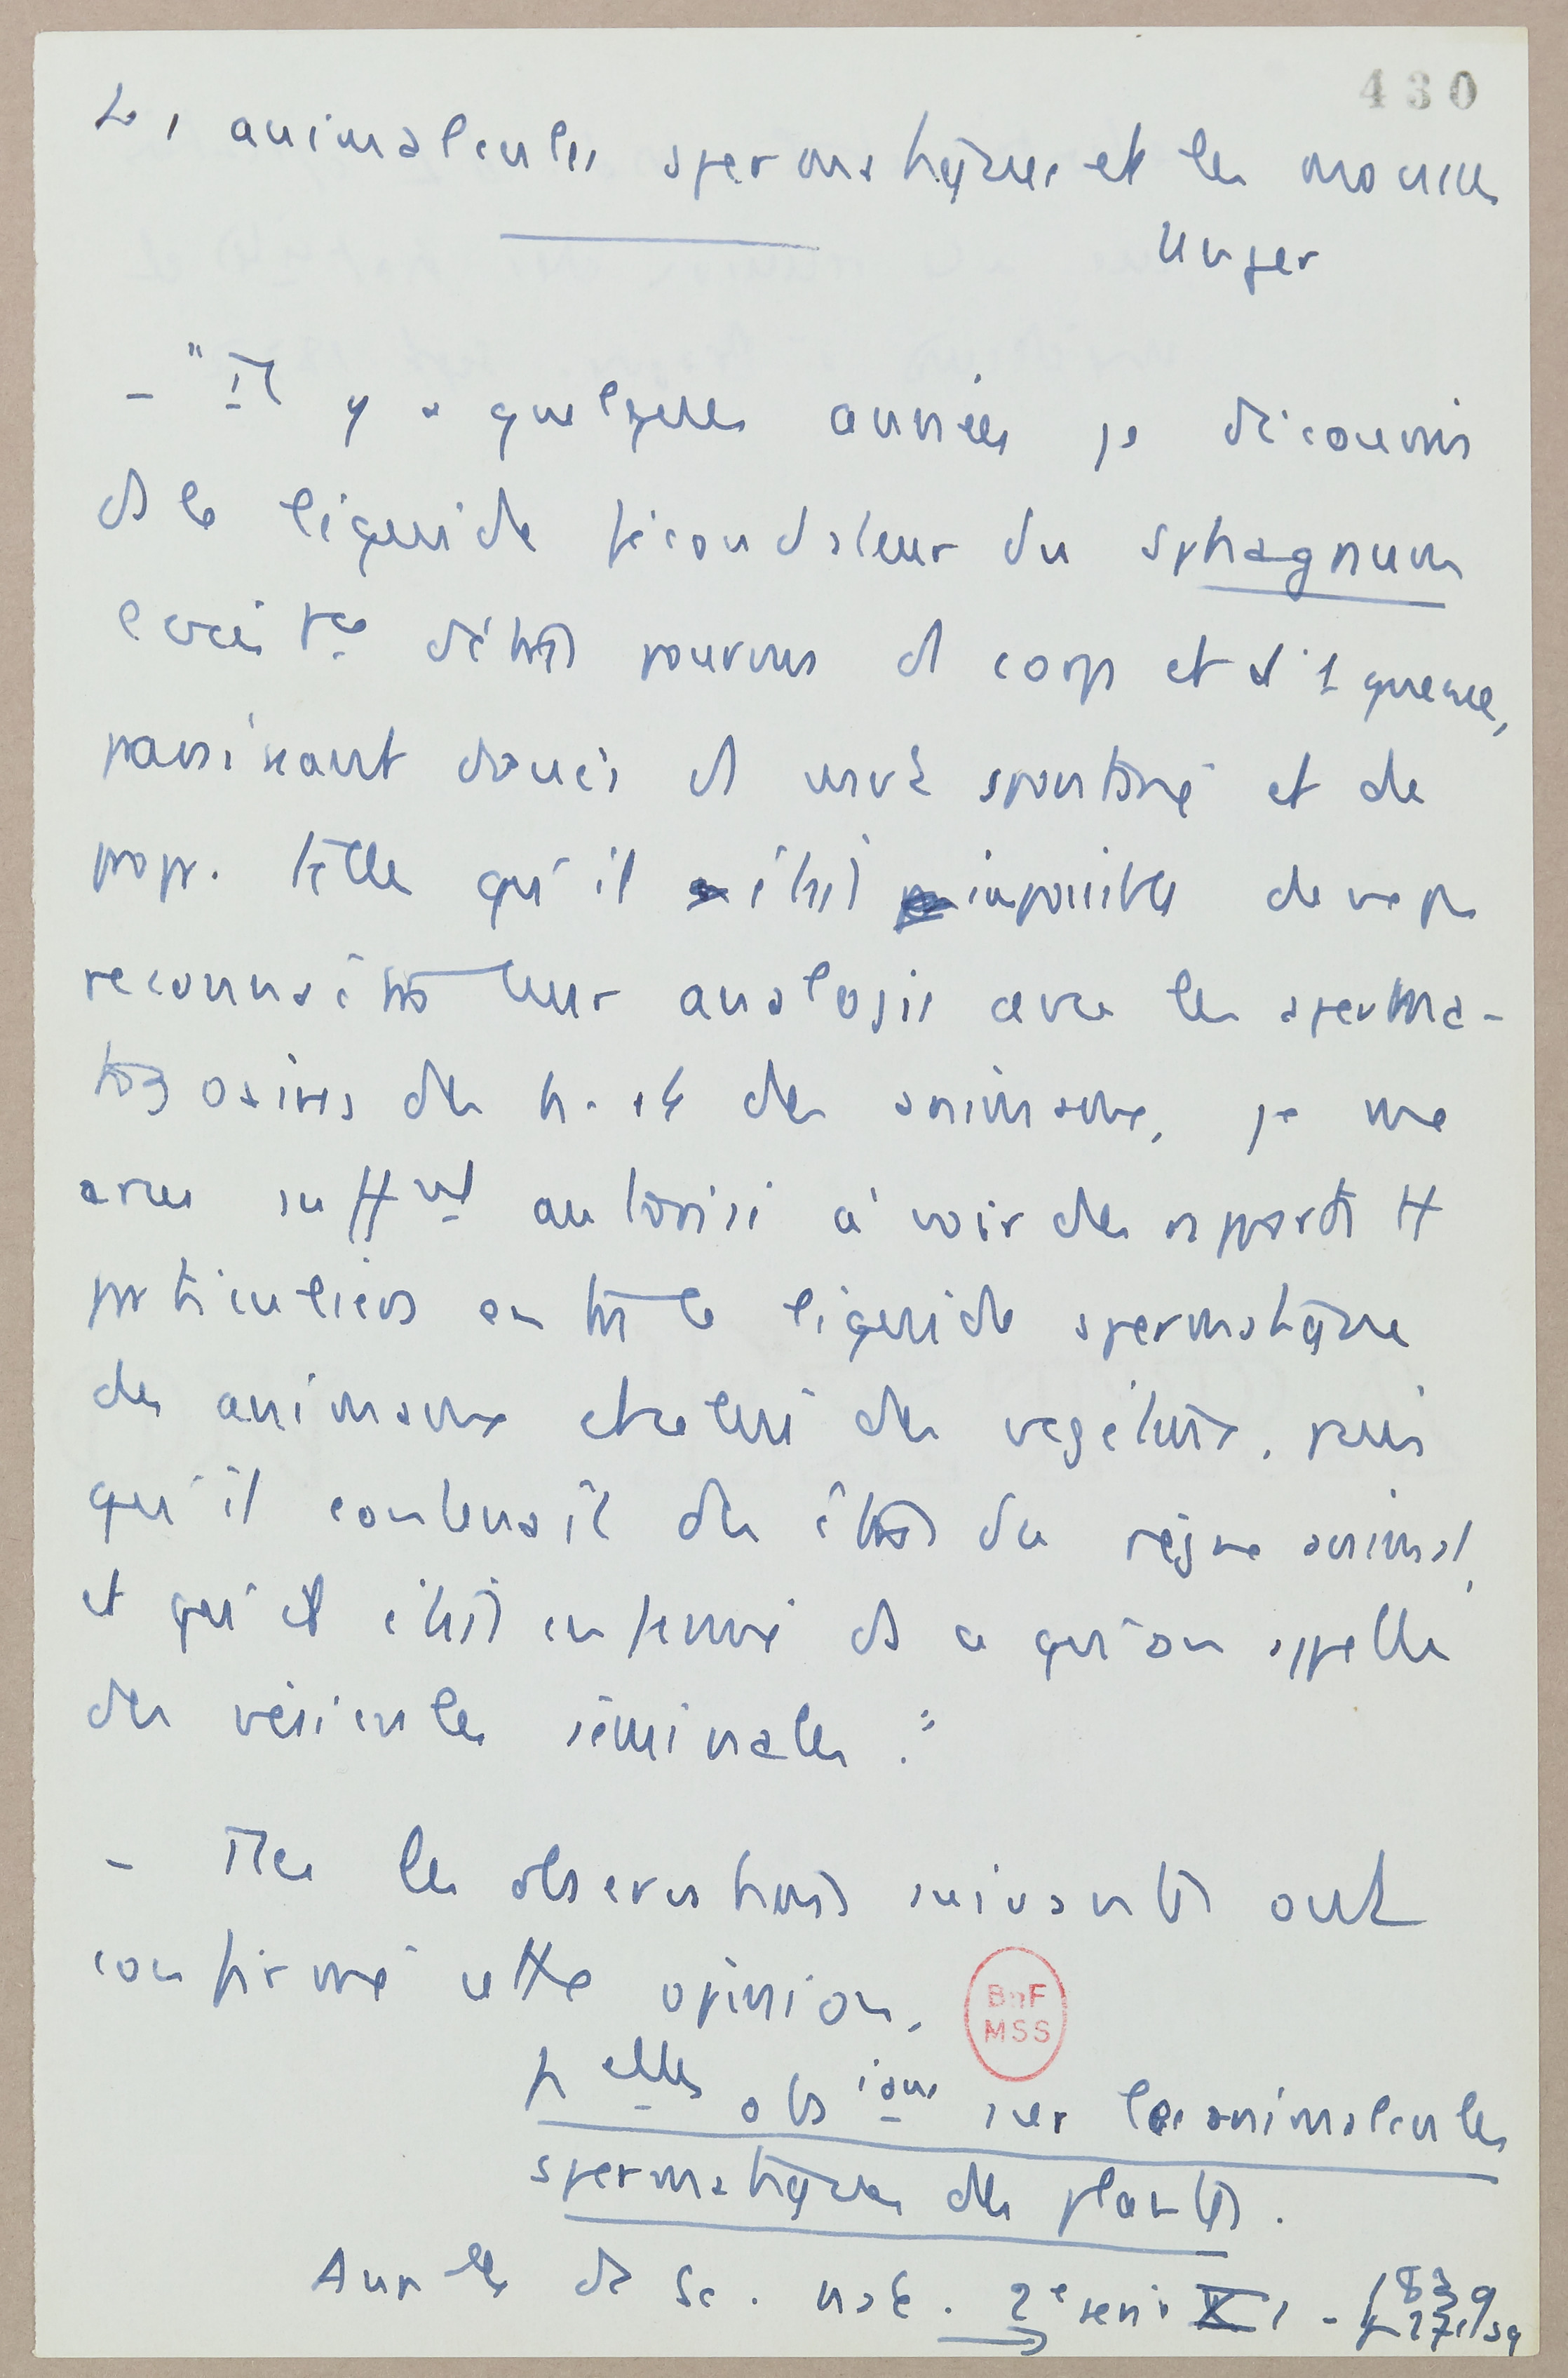 430
Les animalcules spermatiques et les mousses
Unger
- "Il y a quelques années je découvris
ds le liquide fécondateur du sphagnum
certains êtres pourvus d corps et d'1 queue,
paraissant doués d mvt spontané et de
propr. telles qu'il était impossible de ne pas
reconnaître leur analogie avec les sperma-
tozoaires de h. et des animaux, je me
crus suffmt autorisé à voir des rapports tt
particuliers entre le liquide spermatique
des animaux et celui des végétaux, puis
qu'il contenait des êtres du règne animal,
et qu'il était enfermé ds ce qu'on appelle
des vésicules séminales."
- Ttes les observations suivantes ont
confirmé cette opinion.
BnF
MSS
Nelles obsions sur les animalcules
spermatiques des plantes.
Annles de Sc. nat. 2e série XI - 1839
p 271/sq